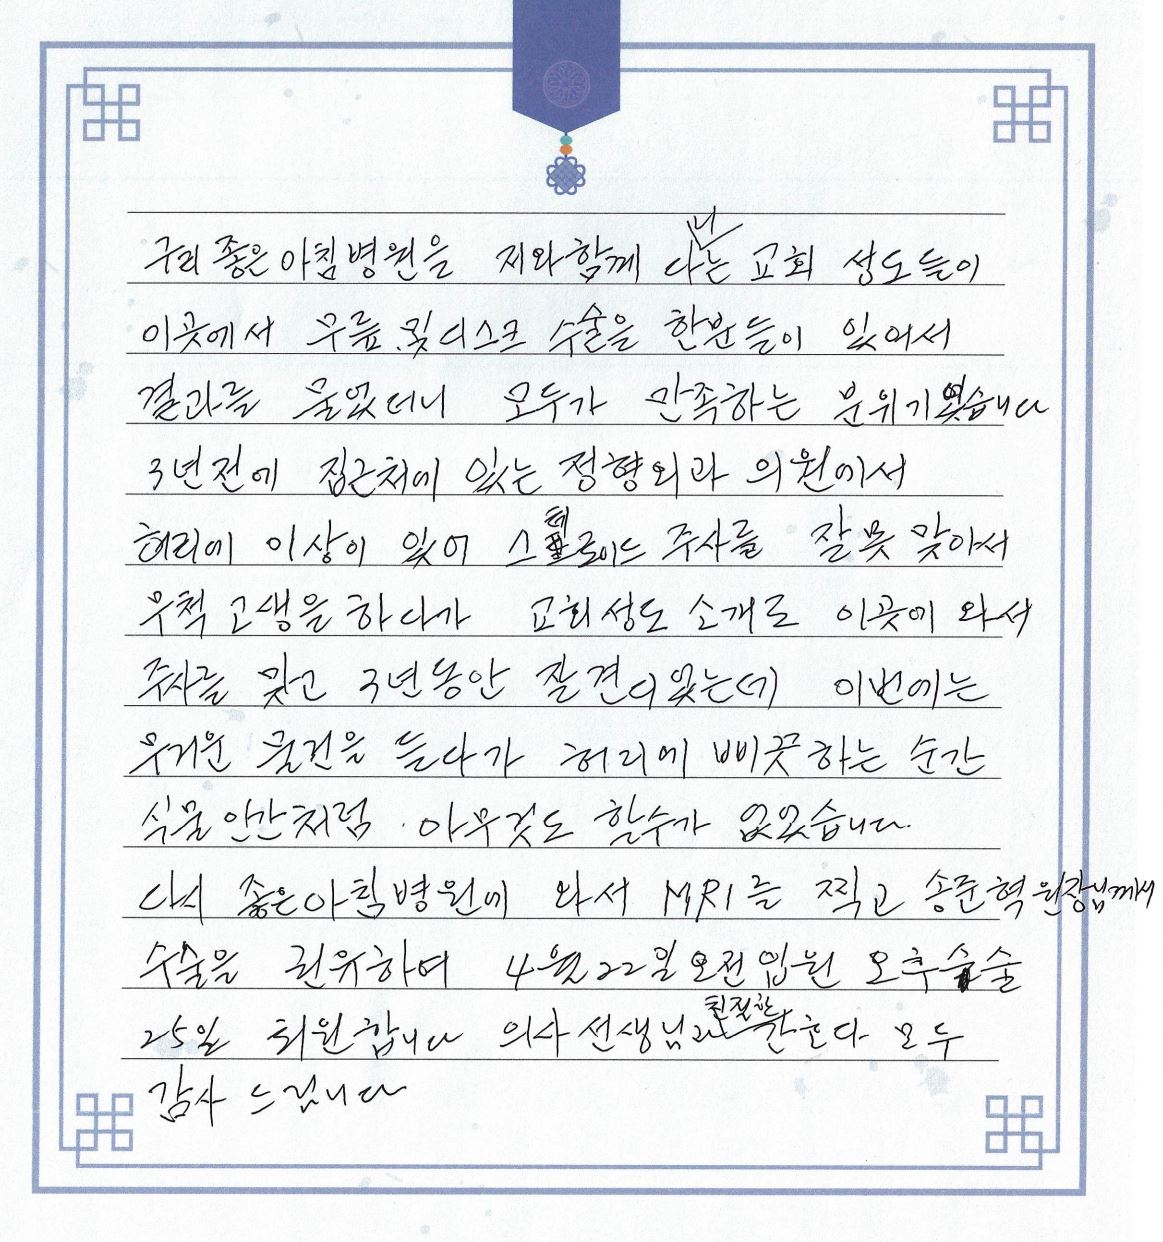 구리 좋은아침병원을 저와함께 다니는 교회 성도들이
이곳에서 무릎 및 디스크 수술을 한분들이 있어서
결과를 물었더니 모두가 만족하는 분위기였습니다
3년전에 집근처에 있는 정형외과 의원에서
허리에 이상이 있어 스테로이드 주사를 잘못 맞아서
무척 고생을 하다가 교회성도 소개로 이곳에 와서
주사를 맞고 3년동안 잘견디었는데 이번에는
무거운 물건을 들다가 허리에 삐끗하는 순간
식물인간처럼 아무것도 할수가 없었습니다.
다시 좋은아침병원에 와서 MRI를 찍고 송준혁원장님께서
수술을 권유하며 4월22일 오전입원 오후 수술
25일 퇴원합니다 의사선생님과 친절한 간호다 모두
감사 드립니다